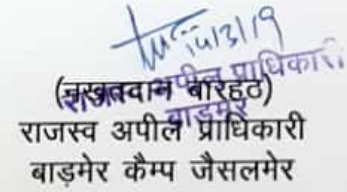 14/3/19
राजस्व अपील प्राधिकारी
बाड़मेर
(नखतदान बारहठ)
राजस्व अपील प्राधिकारी
बाड़मेर कैम्प जैसलमेर